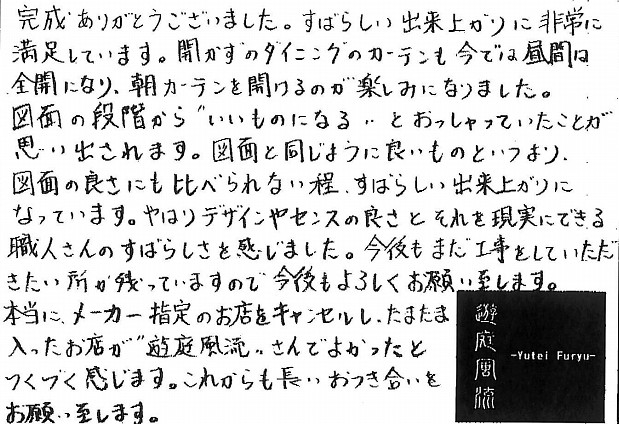 完成ありがとうございました。すばらしい出来上がりに非常に
満足しています。開かずのダイニングのカーテンも今では昼間は
全開になり、朝カーテンを開けるのが楽しみになりました。
図面の段階から"いいものになる"とおっしゃっていたことが
思い出されます。図面と同じように良いものというより、
図面の良さにも比べられない程、すばらしい出来上がりに
なっています。やはりデザインやセンスの良さとそれを現実にできる
職人さんのすばらしさを感じました。今後もまだ工事をしていただ
きたい所が残っていますので今後もよろしくお願い致します。
本当に、メーカー指定のお店をキャンセルし、たまたま
入ったお店が"遊庭風流"さんでよかったと
つくづく感じます。これからも長いおつき合いを
お願い致します。
遊庭風流
-Yutei Furyu-